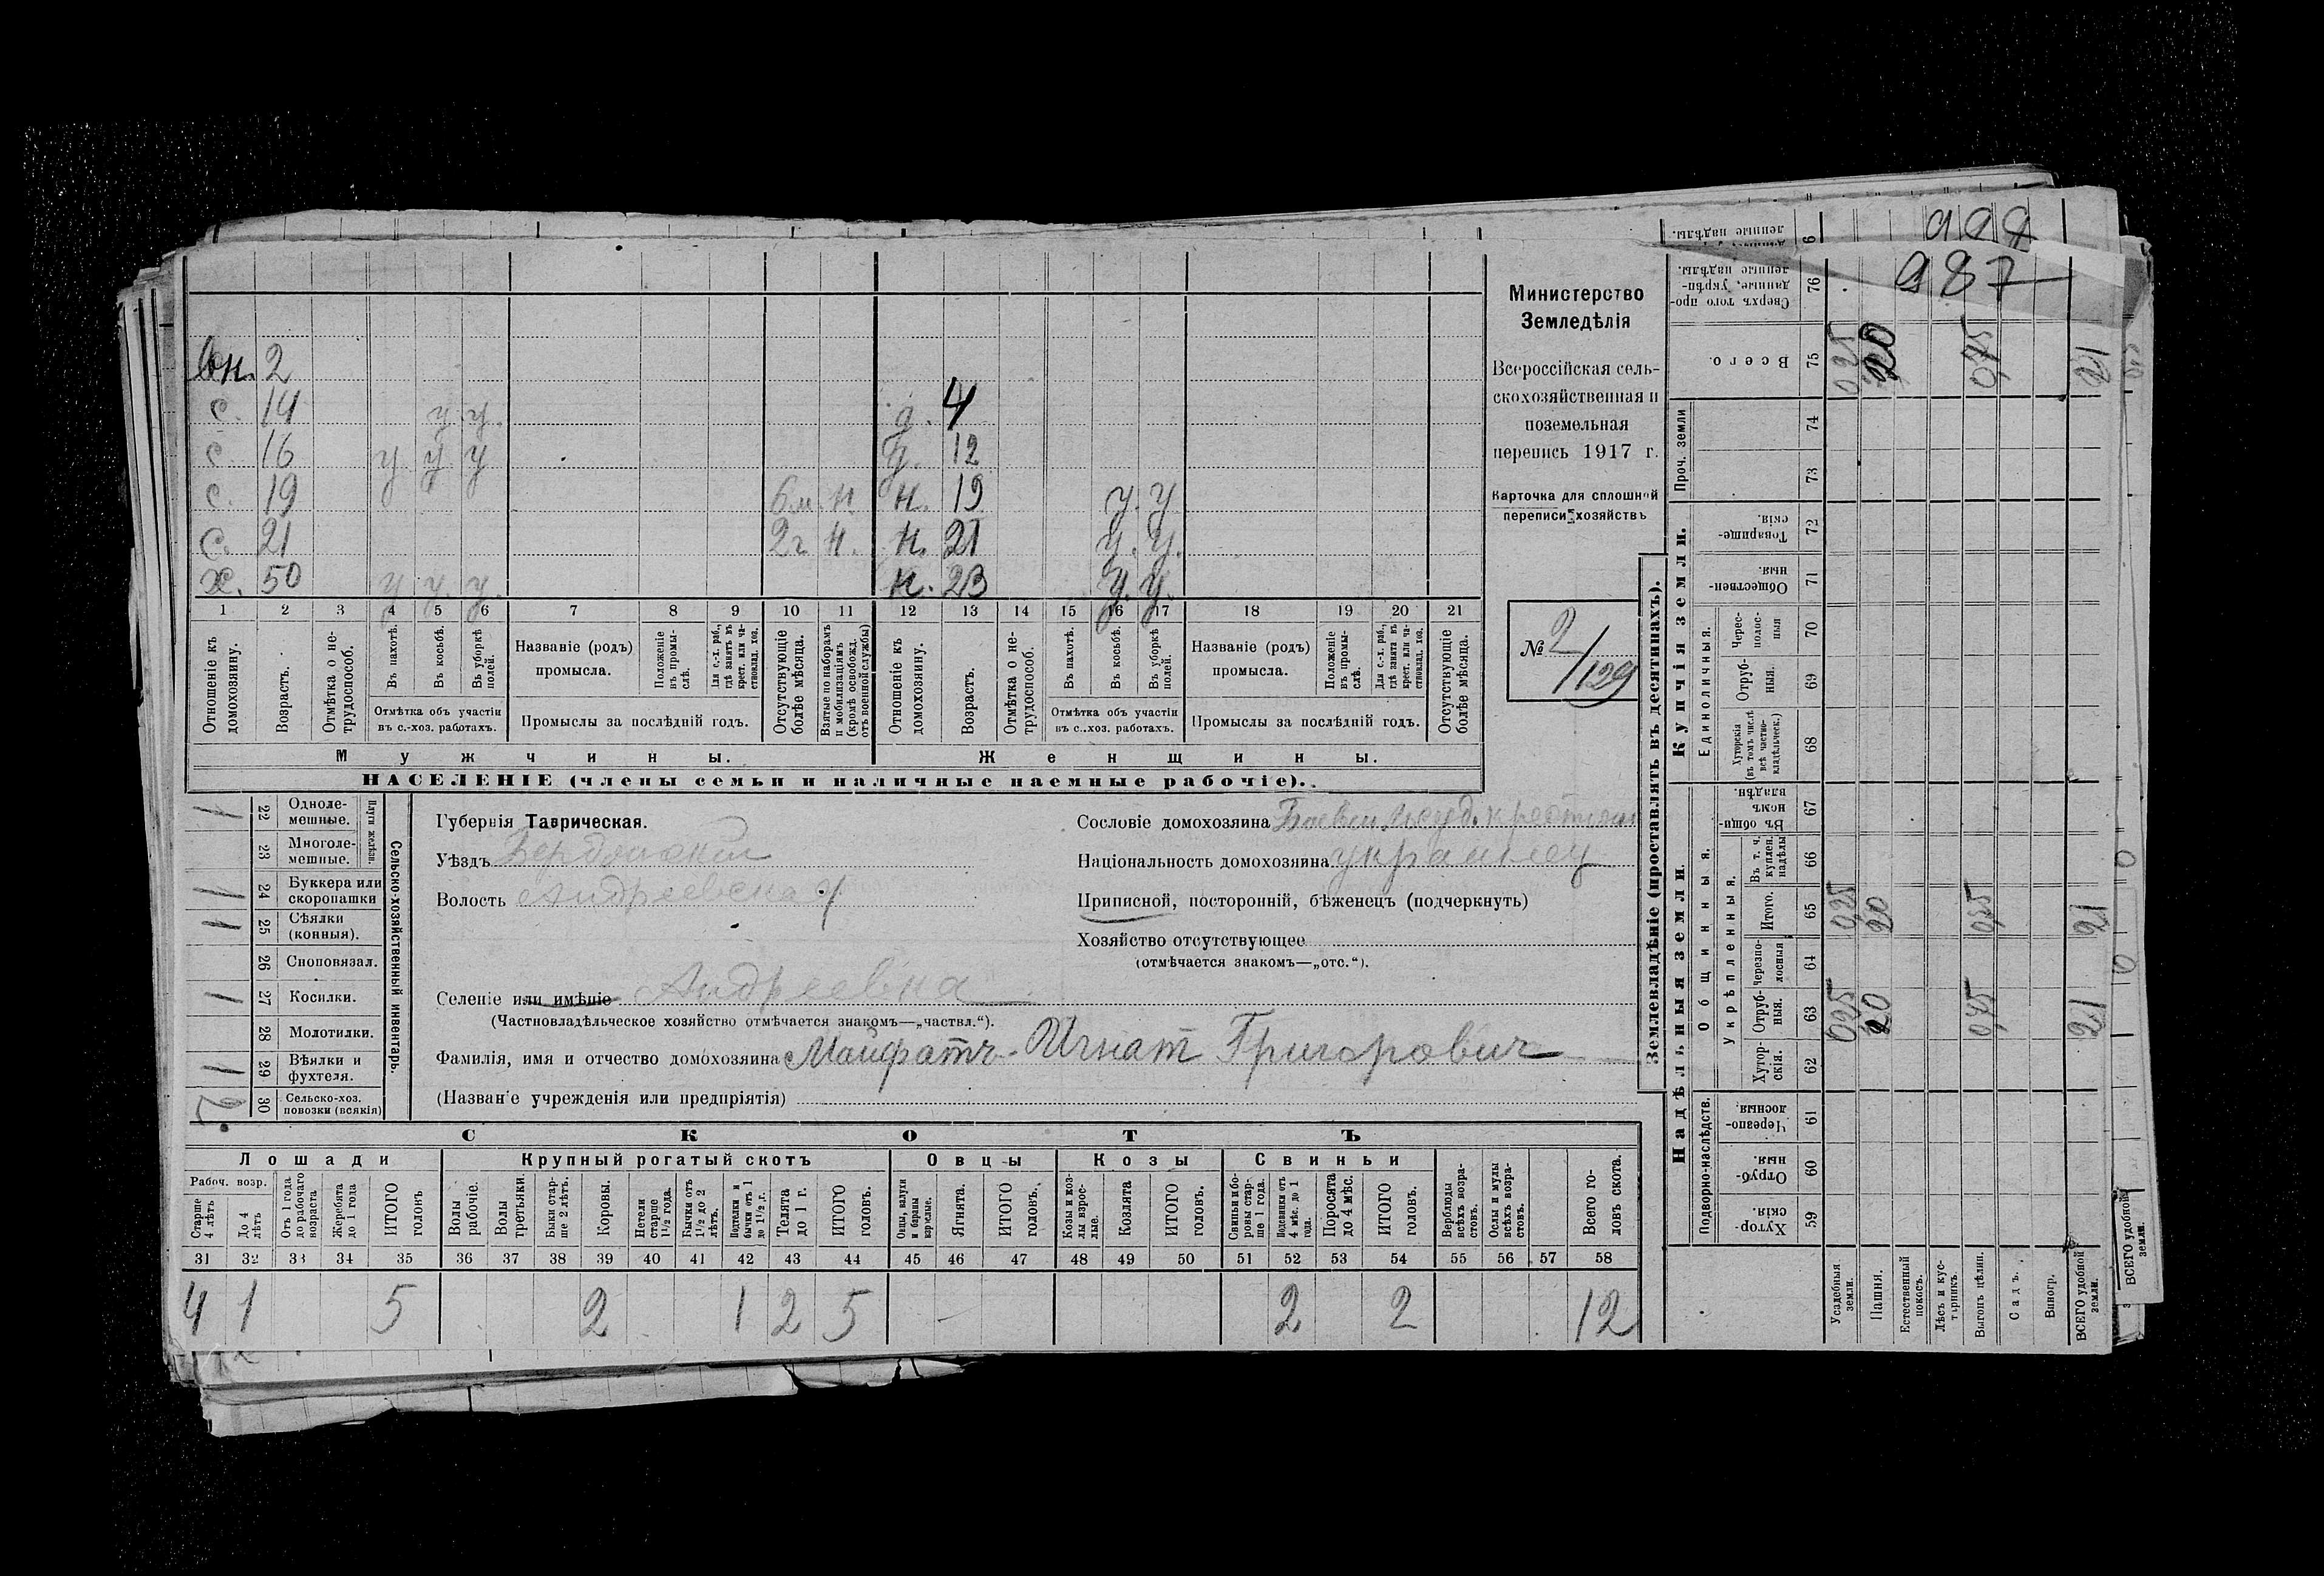 987
вн. 2
с. 14 у. у. д. 4
с. 16 у у. у д. 12
с. 19 6 м. н. н. 19 у. у
с. 21 2 г. н. н. 21 у. у.
х. 50 у у. у. н. 23 у. у.
1 2 3 4 5 6 7 8 9 10 11 12 13 14 15 16 17 18 19 20 21
Отношеніе къ домохозяину.
Возрастъ.
Отмѣтка о нетрудоспособ.
Въ пахотѣ.
Въ косьбѣ.
Въ уборкѣ полей.
Отмѣтка объ участіи
въ с.-хоз. работахъ.
Названіе (родъ)
промысла.
Положеніе въ промыслѣ.
Для с.-х. раб., гдѣ занятъ въ крест. или частновлад. хоз.
Промыслы за послѣдній годъ.
Отсутствующіе болѣе мѣсяца.
Взятые по наборамъ и мобилизаціямъ (кромѣ освобожд. отъ военной службы)
Отношеніе къ домохозяину.
Возрастъ.
Отмѣтка о нетрудоспособ.
Въ пахотѣ.
Въ косьбѣ.
Въ уборкѣ полей.
Отмѣтка объ участіи
въ с.-хоз. работахъ.
Названіе (родъ)
промысла.
Положеніе въ промыслѣ.
Для с.-х. раб., гдѣ занята въ крест. или частновлад. хоз.
Промыслы за послѣдній годъ.
Отсутствующіе болѣе мѣсяца.
Мужчины. Женщины.
НАСЕЛЕНІЕ (члены семьи и наличные наемные рабочіе).
Министерство
Земледѣлія
Всероссійская сель-
скохозяйственная и
поземельная
перепись 1917 г.
Карточка для сплошной
переписи хозяйствъ
№ 2/129
Сельско-хозяйственный инвентарь.
Плуги желѣзн.
1 22 Одноле-
мешные.
23 Многоле-
мешные.
1 24 Буккера или
скоропашки
1 25 Сѣялки
(конныя).
26 Сноповязал.
1 27 Косилки.
28 Молотилки.
1 29 Вѣялки и
фухтеля.
2 30 Сельско-хоз.
повозки (всякія)
Губернія Таврическая.
Уѣздъ Бердянскій
Волость Андреевская
Селеніе или имѣніе Андреевка
(Частновладѣльческое хозяйство отмѣчается знакомъ—„частвл.“).
Фамилія, имя и отчество домохозяина Игнат Григорович
(Названіе учрежденія или предпріятія)
Сословіе домохозяина
Національность домохозяина украинец
Приписной, посторонній, бѣженецъ (подчеркнуть)
Хозяйство отсутствующее
(отмѣчается знакомъ—„отс.“).
СКОТЪ
Лошади Крупный рогатый скотъ Овцы Козы Свиньи
Рабоч. возр.
Старше 4 лѣтъ
До 4 лѣтъ
Отъ 1 года до рабочаго возраста
Жеребята до 1 года
ИТОГО головъ
Волы рабочіе.
Волы третьяки.
Быки старше 2 лѣтъ.
Коровы.
Нетели старше 1½ года.
Бычки отъ 1½ до 2 лѣтъ.
Подтелки и бычки отъ 1 до 1½ г.
Телята до 1 г.
ИТОГО головъ.
Овцы, валухи и бараны взрослые.
Ягнята.
ИТОГО головъ.
Козы и козлы взрослые.
Козлята
ИТОГО головъ.
Свиньи и боровы старше 1 года.
Подсвинки отъ 4 мѣс. до 1 года.
Поросята до 4 мѣс.
ИТОГО головъ.
Верблюды всѣхъ возрастовъ.
Ослы и мулы всѣхъ возрастовъ.
Всего головъ скота.
31 32 33 34 35 36 37 38 39 40 41 42 43 44 45 46 47 48 49 50 51 52 53 54 55 56 57 58
4 1 5 2 1 2 5 2 2 12
Землевладѣніе (проставлять въ десятинахъ).
Надѣльныя земли. Купчія земли. Проч. земли
Подворно-наслѣдств.
Общинныя.
Укрѣпленныя.
Единоличныя.
Сверхъ того проданные, укрѣпленные надѣлы. 76
Всего. 75 0,25 20 0,75 21
74
73
Товарищескія. 72
Общественныя. 71
Чересполосныя 70
Отрубныя. 69
Хуторскія (въ томъ числѣ всѣ частновладѣльческ.) 68
Въ общиномъ владѣн. 67
Въ т. ч. куплен. надѣлы 66
Итого. 65 0,25 20 21
Черезполосныя 64
Отрубныя. 63 0,25 20 0,75 21
Хуторскія. 62
Черезполосныя. 61
Отрубныя. 60
Хуторскія. 59
Усадебныя земли.
Пашня.
Естественный покосъ.
Лѣсъ и кустарникъ.
Выгонъ цѣлин.
Садъ.
Виногр.
ВСЕГО удобной земли.
ВСЕГО удобной земли.